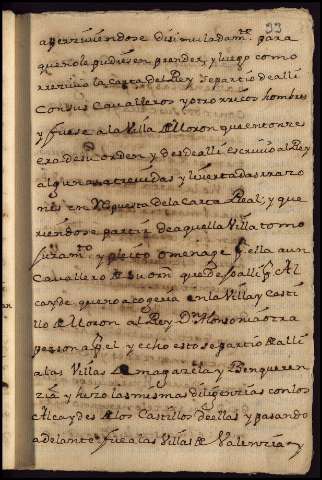 93
aperziviendose disimuladam.te para
que no le pudiesen prender, y luego como
rrezivio la Carta del Rey se partio de alli
Con sus Cavalleros y otros rricos hombres
y fuese a la Villa de Lloron que entonze
era de su orden y desde alli escrivio al Rey
algunas atrevidas y livertadas rrazo
nes en Respuesta de la Carta Real, y que
riendose partir de aquella Villa tomo
juram.to y pleito omenage a un
Cavallero de su orn que dejo alli Al
cayde que no acogeria en la Villa y Casti
llo de Lloron al Rey Dn Alonso ni a otra
persona y echo esto se partio de alli
a las Villas de magazela y Benqueren
zia y hizo las mismas diligenzias con los
Alcaydes de los Castillos de ellas y pasando
adelante fue a las Villas de Valenzia y